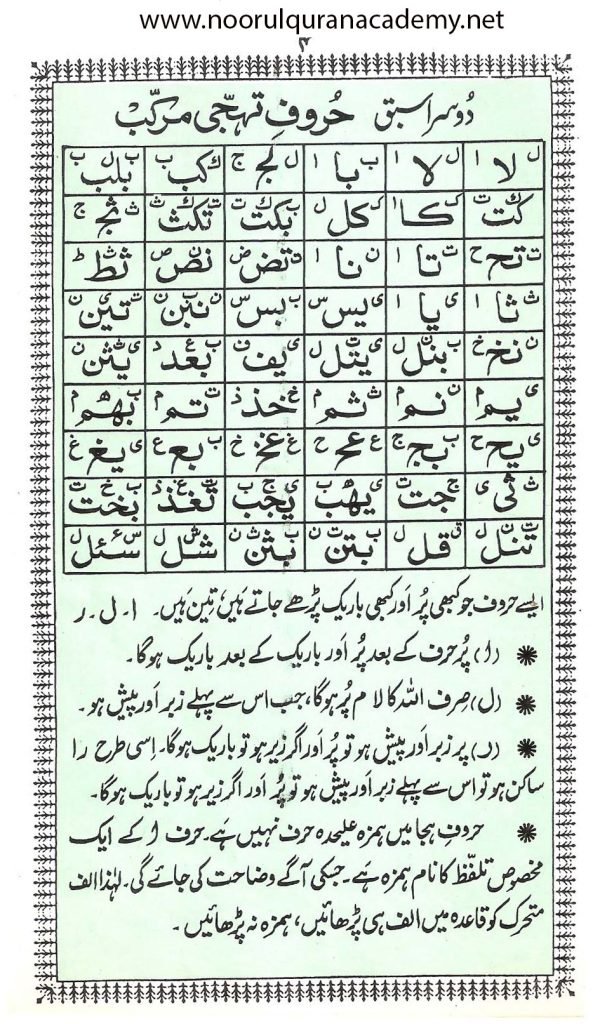 www.noorulquranacademy.net
۴
دُوسرا سبق حُروفِ تہجّی مرکّب
ل لا ا ل لا ا ب با ا ل لج ج ک کب ب ب ل بلب ب
ک کت ت ک کا ا ک کل ل ب ک بکت ت ت ک تکث ث ث ثج ج
ت تح ح ت تا ا ن نا ا ت تض ض ن نص ص ث ثط ط
ث ثا ا ی یا ا ی یس س ب بس س ن ب نبن ن ت ی تین ن
ن نخ خ ب ن بنل ل ی ت یتل ل ی یف ف ب ع بعد د ی ث یثن ن
ی یم م ن نم م ث ثم م خ خذ ذ ت تم م ب ھ بھم م
ی یح ح ب بج ج ع عح ح غ غخ خ ب بع ع ی یغ غ
ث ثی ی ج جت ت ی ھ یھب ب ی ج یجب ب ت غ تغذ ذ ب خ بخت ت
ت ن تنل ل ق قل ل ب ت بتن ن ب ث بثن ن ش شل ل س ء سئل ل
ایسے حروف جو کبھی پُر اَور کبھی باریک پڑھے جاتے ہَیں، تِین ہَیں۔ ا۔ ل۔ ر
(ا) پُر حرف کے بعد پُر اَور باریک کے بعد باریک ہوگا۔
(ل) صِرف اللہ کا لام پُر ہوگا، جب اس سے پہلے زبر اَور پیش ہو۔
(ر) پر زبر اَور پیش ہو تو پُر اَور اگر زیر ہو تو باریک ہوگا۔ اِسی طرح را
ساکن ہو تو اس سے پہلے زبر اَور پیش ہو تو پُر اَور اگر زیر ہو تو باریک ہوگا۔
حروفِ ہجا میں ہمزہ علیحدہ حرف نہیں ہَے۔ حرف ا کے ایک
مخصوص تلفّظ کا نام ہمزہ ہَے۔ جسکی آگے وضاحت کی جائے گی۔ لہٰذا الف
متحرک کو قاعدہ میں الف ہی پڑھائیں، ہمزہ نہ پڑھائیں۔